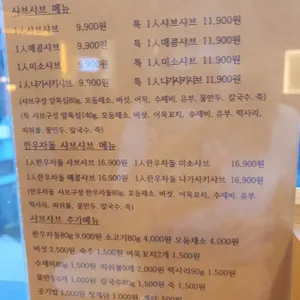 샤브샤브 메뉴
1인샤브샤브 9,900원 특 1인샤브샤브 11,900원
1인매콤샤브 9,900원 특 1인매콤샤브 11,900원
1인미소샤브 9,900원 특 1인미소샤브 11,900원
1인나가사키샤브 9,900원 특 1인나가사키샤브 11,900원
(샤브구성 얼목심80g, 모듬채소, 버섯, 어묵, 수제비, 유부, 물만두, 칼국수, 죽)
(특 샤브구성 얼목심140g, 모듬채소, 버섯, 어묵꼬치, 수제비, 유부, 떡사리,
피쉬볼, 물만두, 칼국수, 죽)
한우차돌 샤브샤브 메뉴
1인한우차돌 샤브샤브 16,900원 1인한우차돌 미소샤브 16,900원
1인한우차돌 매콤샤브 16,900원 1인한우차돌 나가사키샤브 16,900원
(한우차돌 샤브구성 한우차돌80g, 모듬채소, 버섯, 어묵꼬치, 수제비, 유부,
떡사리, 피쉬볼, 물만두, 칼국수, 죽)
샤브샤브 추가메뉴
한우차돌80g 9,000원 소고기80g 4,000원 모듬채소 4,000원
버섯 2,500원 숙주 1,500원 어묵꼬치2개 1,500원
수제비80g 1,500원 피쉬볼9개 2,000원 떡사리90g 1,500원
물만두6개 1,000원 칼국수80g 1,500원 죽 1,500원
공기밥 1,000원